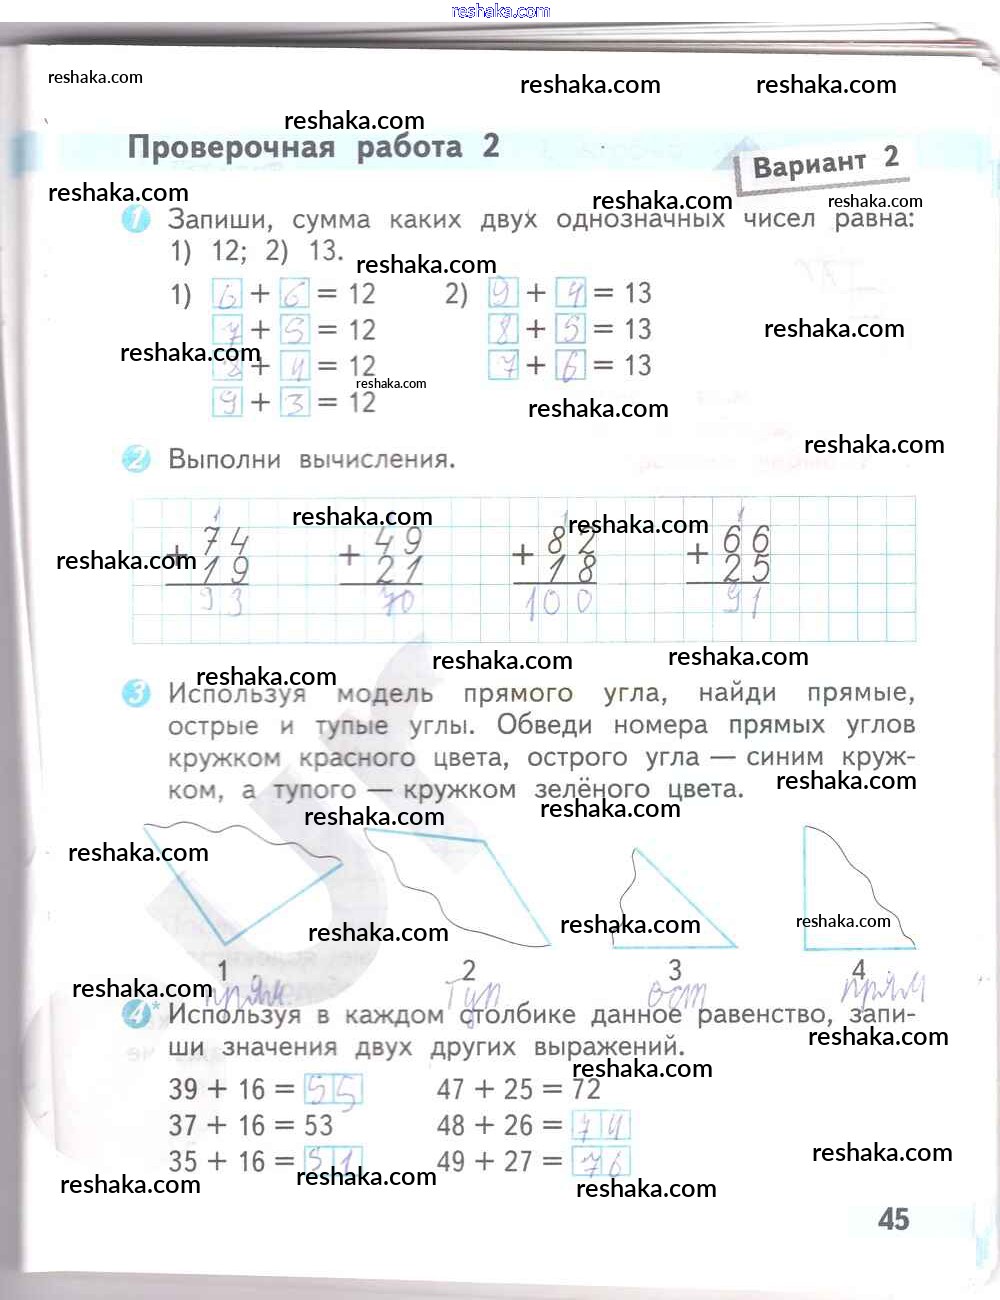 reshaka.com
reshaka.com
reshaka.com reshaka.com
reshaka.com
Проверочная работа 2
Вариант 2
reshaka.com reshaka.com reshaka.com
1 Запиши, сумма каких двух однозначных чисел равна:
1) 12; 2) 13.
reshaka.com
1) 6 + 6 = 12 2) 9 + 4 = 13
7 + 5 = 12 8 + 5 = 13
reshaka.com
reshaka.com
8 + 4 = 12 7 + 6 = 13
reshaka.com
9 + 3 = 12
reshaka.com
reshaka.com
2 Выполни вычисления.
reshaka.com reshaka.com
1 1 1
+ 74 + 49 + 82 + 66
reshaka.com
19 21 18 25
93 70 100 91
reshaka.com reshaka.com
reshaka.com
3 Используя модель прямого угла, найди прямые,
острые и тупые углы. Обведи номера прямых углов
кружком красного цвета, острого угла — синим круж-
reshaka.com
ком, а тупого — кружком зелёного цвета.
reshaka.com reshaka.com
reshaka.com
reshaka.com reshaka.com reshaka.com
1 2 3 4
reshaka.com
прям туп ост прям
4* Используя в каждом столбике данное равенство, запи-
reshaka.com
ши значения двух других выражений.
reshaka.com
39 + 16 = 55 47 + 25 = 72
37 + 16 = 53 48 + 26 = 74
reshaka.com
35 + 16 = 51 49 + 27 = 76
reshaka.com reshaka.com reshaka.com
45